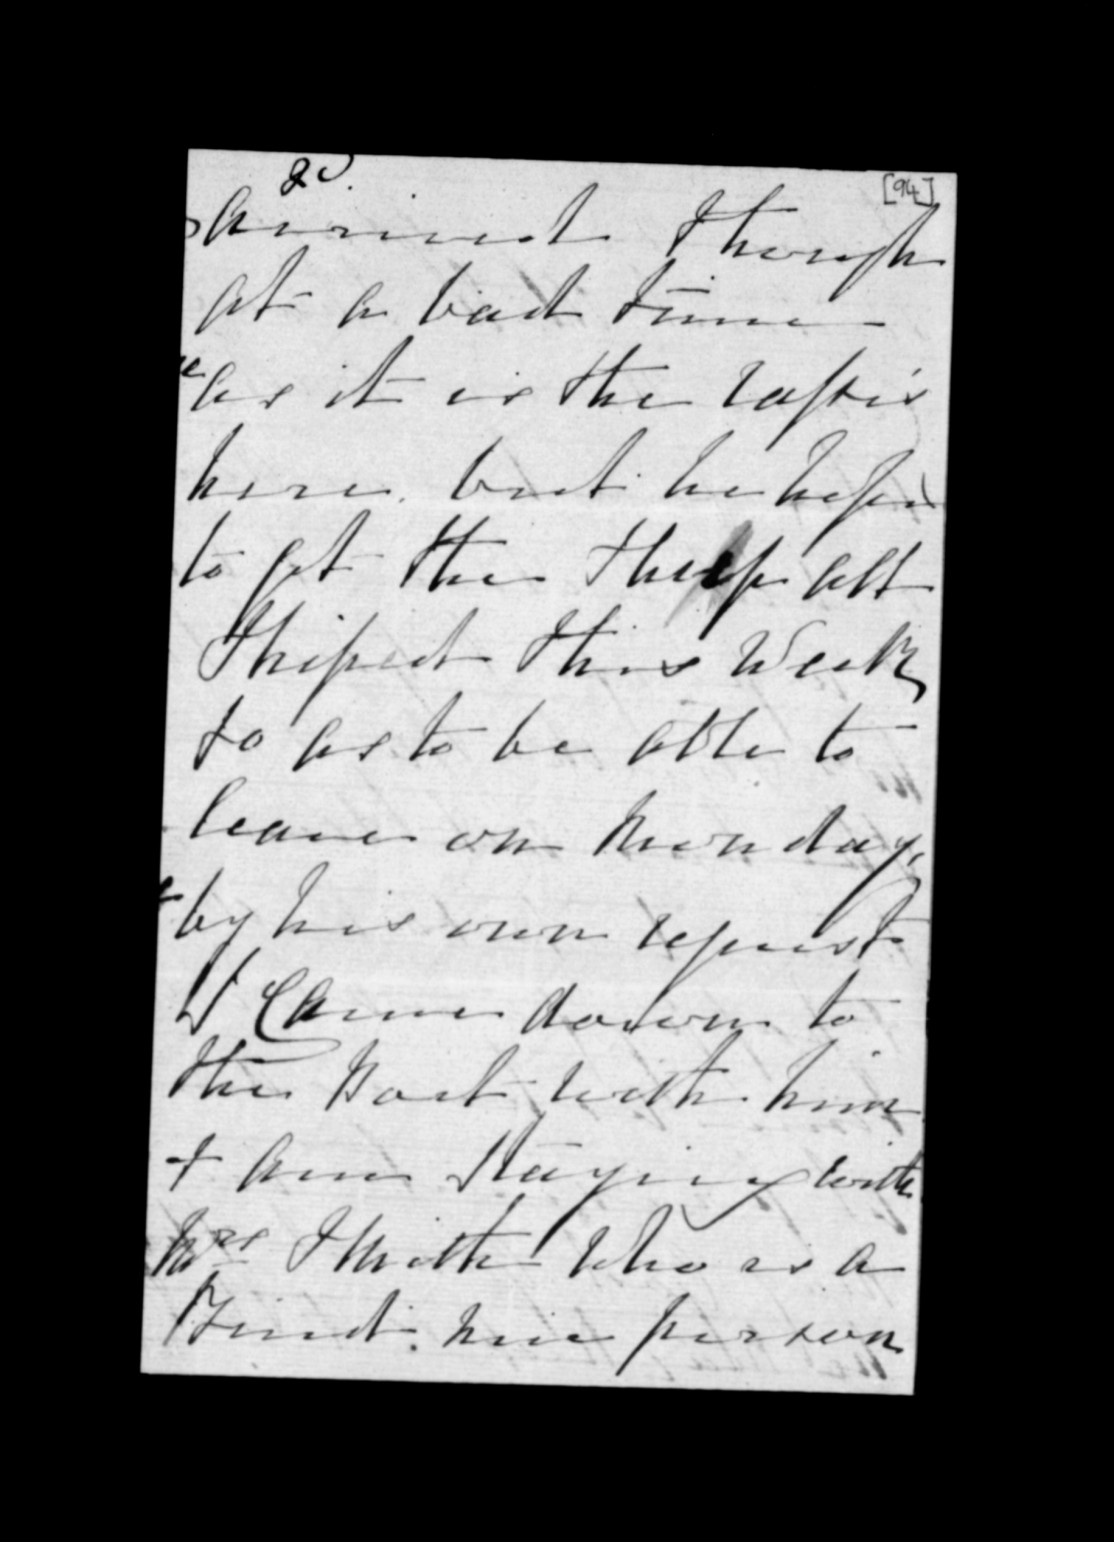 20
[94]
arrived though
at a bad time
as it is the
here. but he hopes
to get the Sheep all
Shiped this Week
so as to be able to
leave on Monday,
by his own request
I Came down to
the Port with him
+ am Staying with
Mrs Smith who is a
Kind. nice person